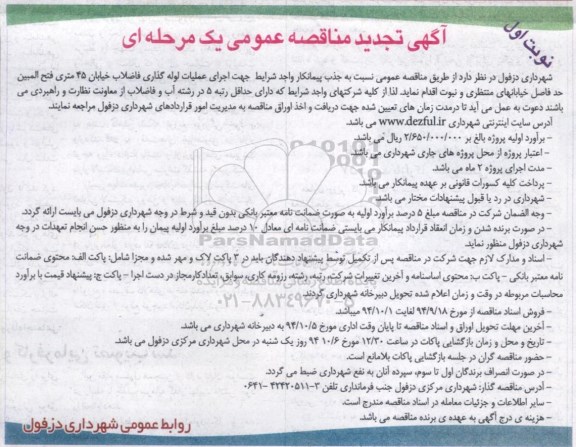 نوبت اول
آگهی تجدید مناقصه عمومی یک مرحله ای
شهرداری دزفول در نظر دارد از طریق مناقصه عمومی نسبت به جذب پیمانکار واجد شرایط جهت اجرای عملیات لوله گذاری فاضلاب خیابان ۴۵ متری فتح المبین
حد فاصل خیابانهای منتظری و نبوت اقدام نماید. لذا از کلیه شرکتهای واجد شرایط که دارای حداقل رتبه ۵ در رشته آب و فاضلاب از معاونت نظارت و راهبردی می
باشند دعوت به عمل می آید تا درمدت زمان های تعیین شده جهت دریافت و اخذ اوراق مناقصه به مدیریت امور قراردادهای شهرداری دزفول مراجعه نمایند.
آدرس سایت اینترنتی شهرداری www.dezful.ir می باشد.
– برآورد اولیه پروژه بالغ بر ۲/۶۵۰/۰۰۰/۰۰۰ ریال می باشد.
– اعتبار پروژه از محل پروژه های جاری شهرداری می باشد.
– مدت اجرای پروژه ۲ ماه می باشد.
– پرداخت کلیه کسورات قانونی بر عهده پیمانکار می باشد.
– شهرداری در رد یا قبول پیشنهادات مختار می باشد.
– وجه الضمان شرکت در مناقصه مبلغ ۵ درصد برآورد اولیه به صورت ضمانت نامه معتبر بانکی بدون قید و شرط در وجه شهرداری دزفول می بایست ارائه گردد.
– در صورت برنده شدن و زمان انعقاد قرارداد پیمانکار می بایستی ضمانت نامه ای معادل ۱۰ درصد مبلغ برآورد اولیه پیمان را به منظور حسن انجام تعهدات در وجه
شهرداری دزفول منظور نماید.
ParsNamadData
– اسناد و مدارک لازم جهت شرکت در مناقصه پس از تکمیل توسط پیشنهاد دهندگان باید در ۳ پاکت لاک و مهر شده و مجزا شامل: پاکت الف: محتوی ضمانت
نامه معتبر بانکی – پاکت ب: محتوی اساسنامه و آخرین تغییرات شرکت، رتبه، رشته، رزومه کاری، سوابق، تعدادکارمجاز در دست اجرا – پاکت ج: پیشنهاد قیمت با برآورد
محاسبات مربوطه در وقت و زمان اعلام شده تحویل دبیرخانه شهرداری گردند.
۰۲۱-۸۸۳۴۹۶۷۰-۵
– فروش اسناد مناقصه از مورخ ۹۴/۹/۱۸ لغایت ۹۴/۱۰/۱ میباشد.
– آخرین مهلت تحویل اوراق و اسناد مناقصه تا پایان وقت اداری مورخ ۹۴/۱۰/۵ به دبیرخانه شهرداری می باشد.
– تاریخ و محل و زمان بازگشایی پاکات در ساعت ۱۲/۳۰ مورخ ۱۰/۶ ۹۴ روز یک شنبه در محل شهرداری مرکزی دزفول می باشد.
– حضور مناقصه گران در جلسه بازگشایی پاکات بلامانع است.
– در صورت انصراف برندگان اول تا سوم، سپرده آنان به نفع شهرداری ضبط می گردد.
– آدرس مناقصه گذار: شهرداری مرکزی دزفول جنب فرمانداری تلفن ۳-۴۲۴۲۰۵۱۱ ۰۶۴۱-
– سایر اطلاعات و جزئیات معامله در اسناد مناقصه مندرج است.
– هزینه ی درج آگهی به عهده ی برنده مناقصه می باشد.
روابط عمومی شهرداری دزفول